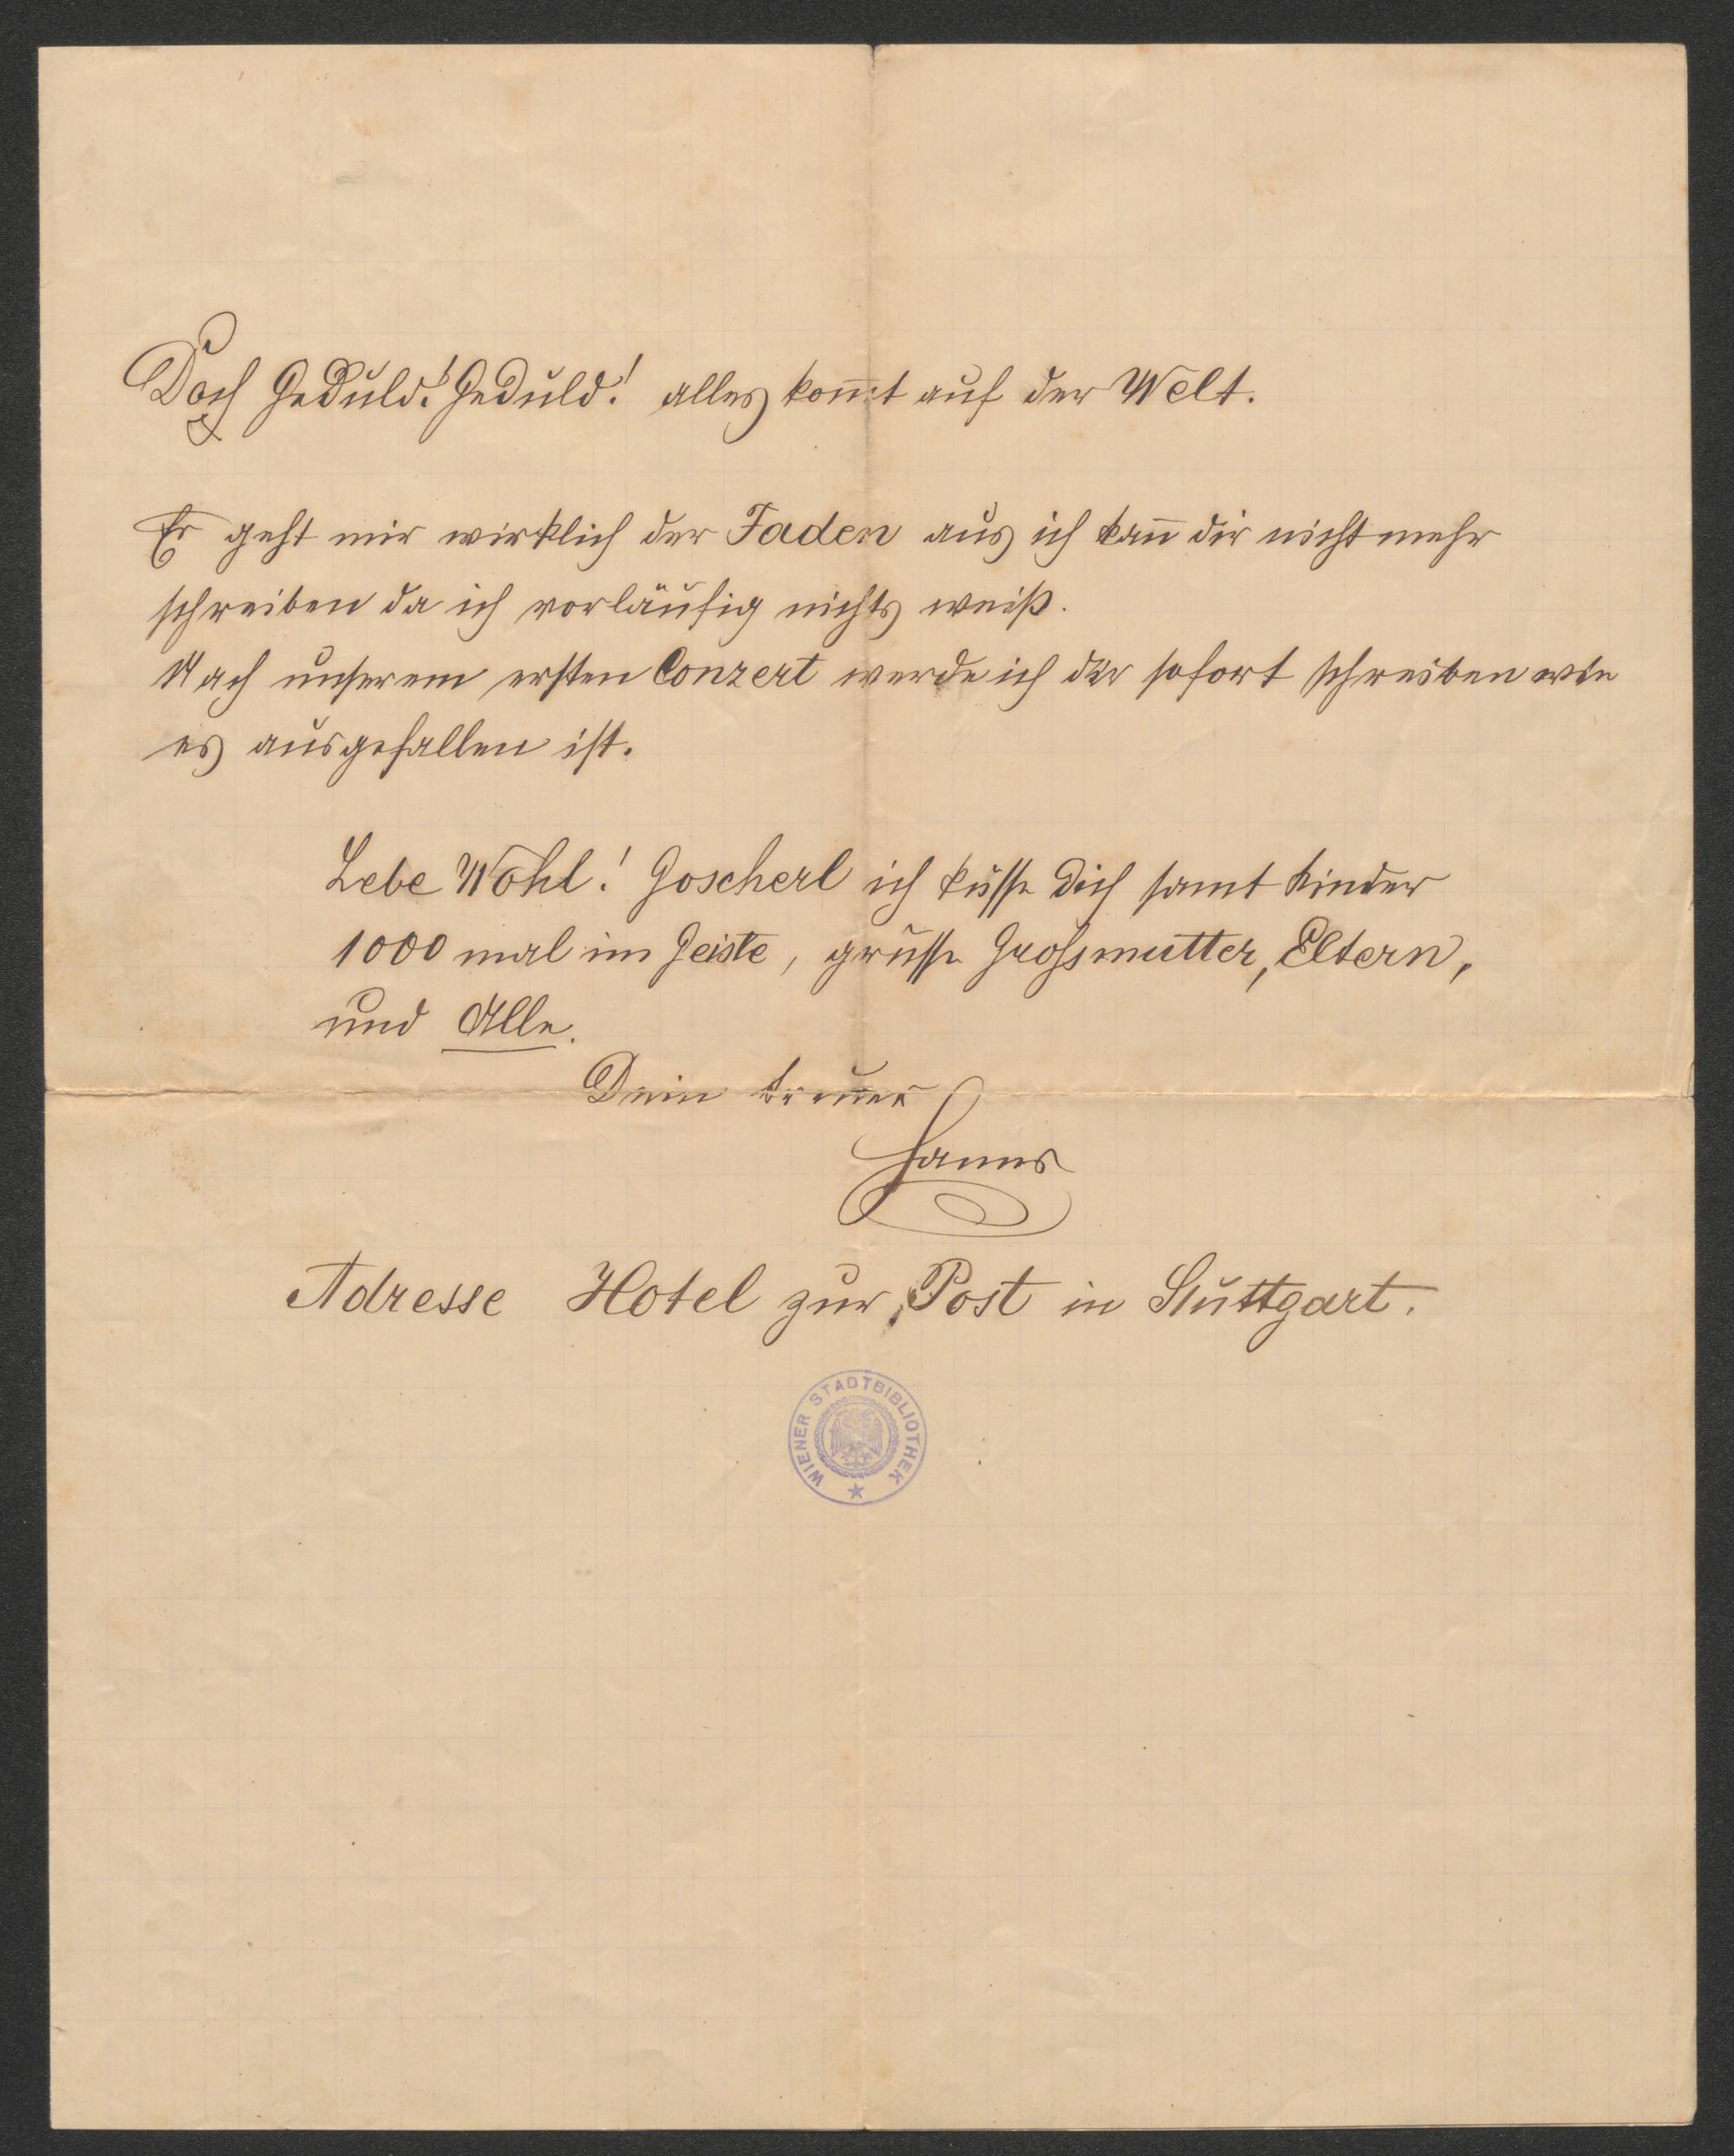 Doch Geduld! Geduld! alles kom̅t auf der Welt.
Er geht mir wirklich der Faden aus ich kan̅ dir nicht mehr
schreiben da ich vorläufig nichts weiß.
Nach unserem ersten Conzert werde ich dir sofort schreiben wie
es ausgefallen ist.
Lebe Wohl! Goscherl ich küsse Dich samt Kinder
1000 mal im Geiste, grüsse Grossmutter, Eltern,
und Alle.
Dein treuer
Hanns
Adresse Hotel zur Post in Stuttgart.
WIENER STADTBIBLIOTHEK